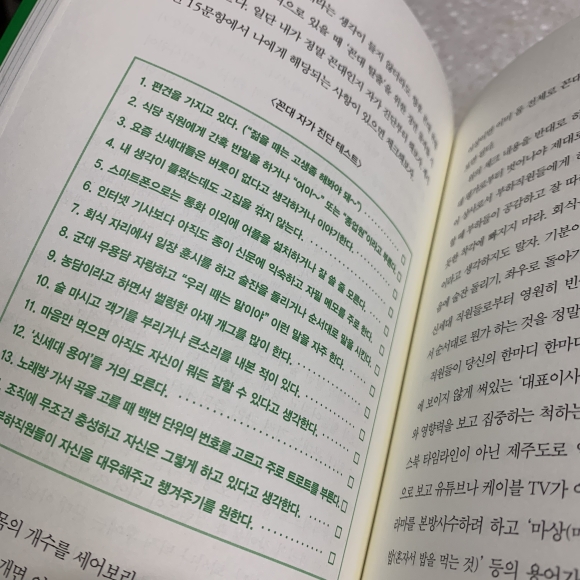 라는 생각이 들지 않더라도
으로 있을 때 '꼰대 탈출'을 위한
다. 일단 내가 정말 꼰대인지 자가 진단부터
15문항에서 나에게 해당되는 사항이 있으면 체크해보자.
<꼰대 자가 진단 테스트>
1. 편견을 가지고 있다. ("젊을 때는 고생좀 해봐야 돼~")
2. 식당 직원에게 간혹 반말을 하거나 "어이~" 또는 "종업원"이라고 부른다.
3. 요즘 신세대들은 버릇이 없다고 생각하거나 이야기한다.
4. 내 생각이 틀렸는데도 고집을 꺾지 않는다.
5. 스마트폰으로는 통화 이외에 어플을 설치하거나 잘 쓸 줄 모른다.
6. 인터넷 기사보다 아직도 종이 신문에 익숙하고 자필 메모를 주로 한다.
7. 회식 자리에서 일장 훈시를 하고 술잔을 돌리거나 순서대로 말을 시킨다.
8. 군대 무용담 자랑하고 "우리 때는 말이야" 이런 말을 자주 한다.
9. 농담이라고 하면서 썰렁한 아재 개그를 많이 한다.
10. 술 마시고 객기를 부리거나 큰소리를 내본 적이 있다.
11. 마음만 먹으면 아직도 자신이 뭐든 잘할 수 있다고 생각한다.
12. '신세대 용어'를 거의 모른다.
13. 노래방 가서 곡을 고를 때 백번 단위의 번호를 고르고 주로 트로트를 부른다.
조직에 무조건 충성하고 자신은 그렇게 하고 있다고 생각한다.
부하직원들이 자신을 대우해주고 챙겨주기를 원한다.
목의 개수를 세어보라
개면
체크 내용을 반대로
내용기로부터 벗어나야 제대로
상사로서 부하직원들에게
할 때 부하들이 공감하고 잘 따
든 착각에 빠지지 마라. 회식
이라고 생각하지도 말자. 기분이
음에 술잔 돌리기, 좌우로 돌아가
신세대 직원들로부터 영원히 반
서 순서대로 뭔가 하는 것을 정말
직원들이 당신의 한마디 한마디
에 보이지 않게 써있는 '대표이사
와 영향력을 보고 집중하는 척하는
스북 타임라인이 아닌 제주도로
으로 보고 유튜브나 케이블 TV가 아
라마를 본방사수하려 하고 '마상(마
밥(혼자서 밥을 먹는 것)' 등의 용어가